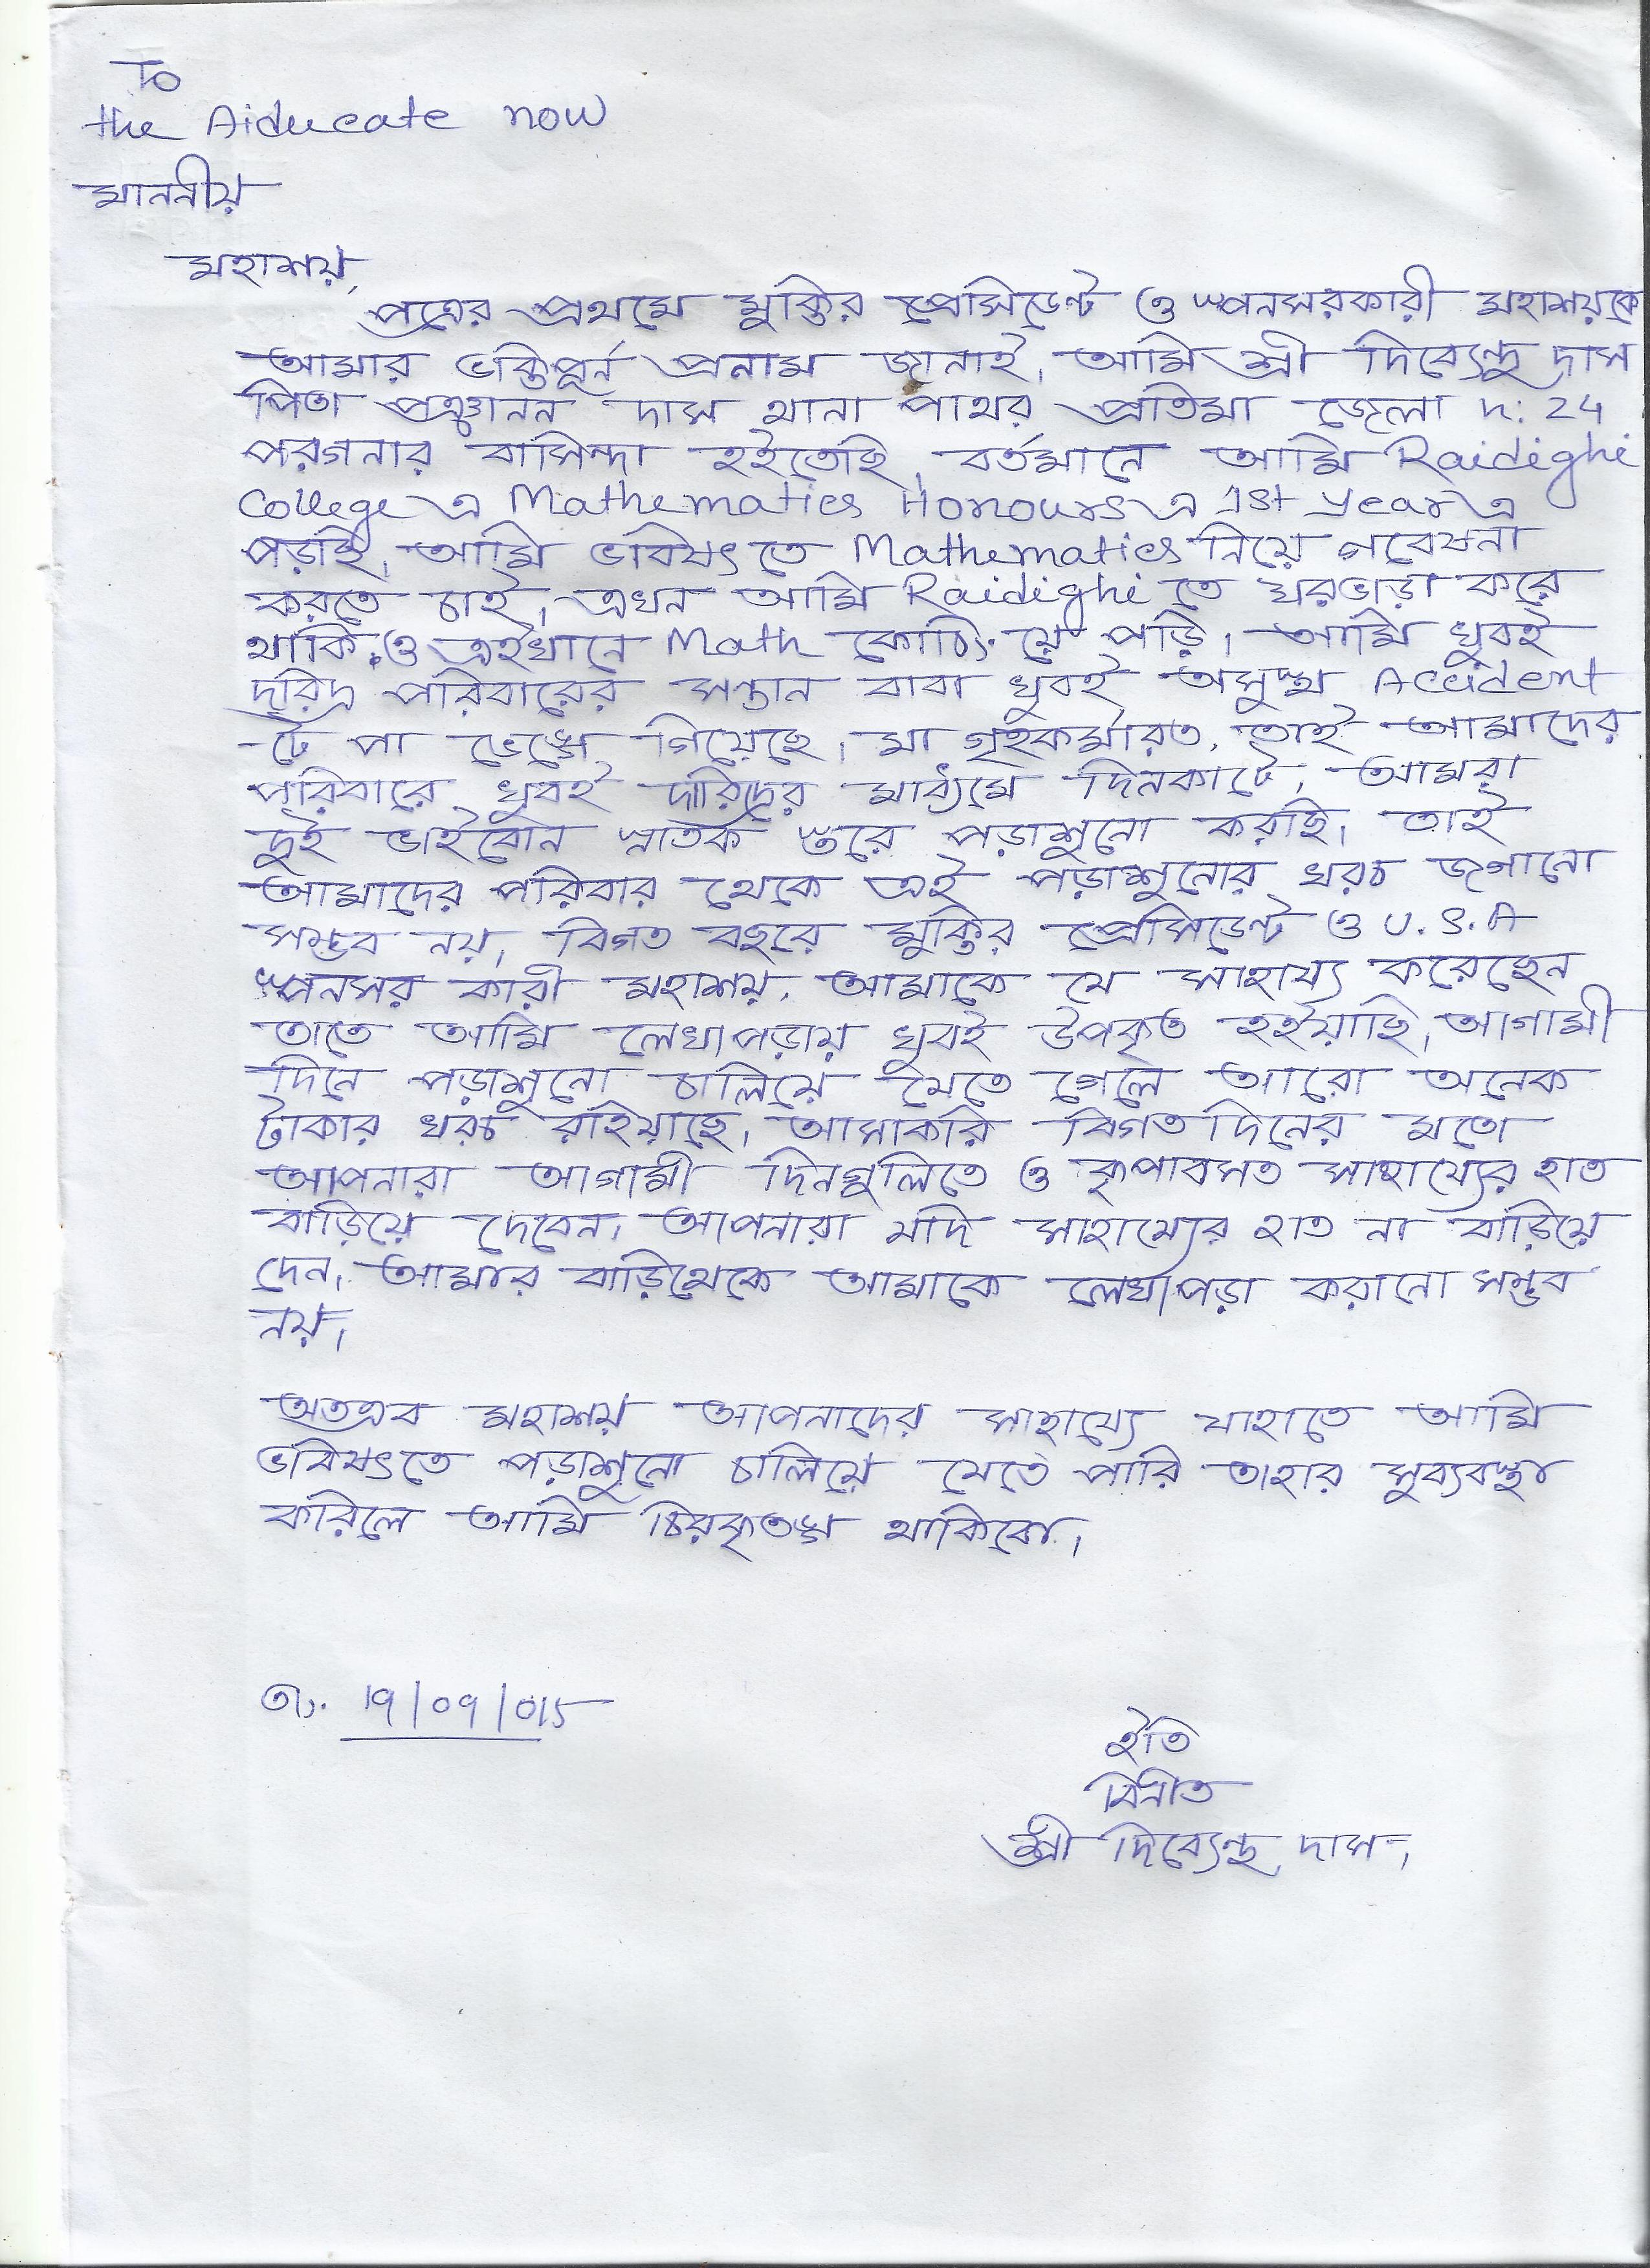 To
the Aiducate now
মাননীয়
মহাশয়,
পত্রের প্রথমে মুক্তির প্রেসিডেন্ট ও স্পনসরকারী মহাশয়কে
আমার ভক্তিপূর্ন প্রনাম জানাই, আমি শ্রী দিব্যেন্দু দাস
পিতা পঞ্চানন দাস থানা পাথর প্রতিমা জেলা দ: 24
পরগনার বাসিন্দা হইতেছি, বর্তমানে আমি Raidighi
College এ Mathematics Honours এ 1st year এ
পড়ছি, আমি ভবিষৎ তে Mathematics নিয়ে গবেষনা
করতে চাই, এখন আমি Raidighi তে ঘরভাড়া করে
থাকি, ও এইখানে Math কোচিং য়ে পড়ি, আমি খুবই
দরিদ্র পরিবারের সন্তান বাবা খুবই অসুস্থ Accident
টে পা ভেঙ্গে গিয়েছে, মা গৃহকর্মারত, তাই আমাদের
পরিবারে খুবই দারিদ্রের মাধ্যমে দিনকাটে, আমরা
দুই ভাইবোন স্নাতক স্তরে পড়াশুনো করছি, তাই
আমাদের পরিবার থেকে এই পড়াশুনোর খরচ জগানো
সম্ভব নয়, বিগত বছরে মুক্তির প্রেসিডেন্ট ও U.S.A
স্পনসর কারী মহাশয়, আমাকে যে সাহায্য করেছেন
তাতে আমি লেখাপড়ায় খুবই উপকৃত হইয়াছি, আগামী
দিনে পড়াশুনো চালিয়ে যেতে গেলে আরো অনেক
টাকার খরচ রহিয়াছে, আসাকরি বিগত দিনের মতো
আপনারা আগামী দিনগুলিতে ও কৃপাবসত সাহায্যের হাত
বাড়িয়ে দেবেন, আপনারা যদি সাহায্যের হাত না বাড়িয়ে
দেন, আমার বাড়িথেকে আমাকে লেখাপড়া করানো সম্ভব
নয়,
অতএব মহাশয় আপনাদের সাহায্যে যাহাতে আমি
ভবিষৎতে পড়াশুনো চালিয়ে যেতে পারি তাহার সুব্যবস্থা
করিলে আমি চিরকৃতজ্ঞ থাকিবো,
তাং 19/09/015
ইতি
বিনীত
শ্রী দিব্যেন্দু দাস,